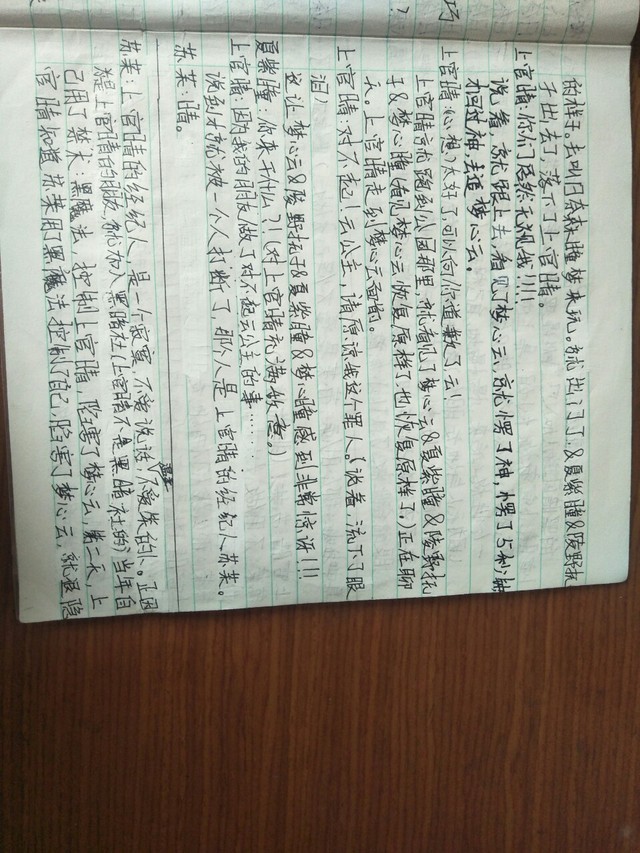 的样子。去叫
梦来玩。就出门了，&夏紫瞳&陵野抗
子出去了，落下了上官晴。
上官晴：你们居然无视我!!!!
说着，就跟上去，看见了梦心云，就愣了神，愣了5秒钟
回过神，去追梦心云。
上官晴（心想）太好了可以向你道歉了云!
上官晴就跑到公园那里，就看见了梦心云&夏紫瞳&陵野抗
子&梦心瞳（看见梦心云恢复原样了也恢复原样了，）正在聊
天。上官晴走到梦心云面前。
上官晴：对不起！云公主，请原谅我这个罪人。（说着，流下了眼
泪）
这让梦心云&陵野抗子&夏紫瞳&梦心瞳感到非常惊讶!!!
夏紫瞳：你来干什么?!（对上官晴充满敌意。）
上官晴：因为我的朋友做了对不起云公主的事……
说到才就被一个人打断了，那个人是上官晴的经纪人苏茉。
苏茉：晴。
苏茉：上官晴的经纪人，是一个寂寞，不爱说话，不爱笑的人。正因
为是上官晴的朋友，就加入黑暗社（上官晴不是黑暗社的）当年自
己用了禁术：黑魔法，控制上官晴，陷害了梦心云，第二天，上
官晴知道苏茉用黑魔法控制了自己，陷害了梦心云，就退隐
巧
?